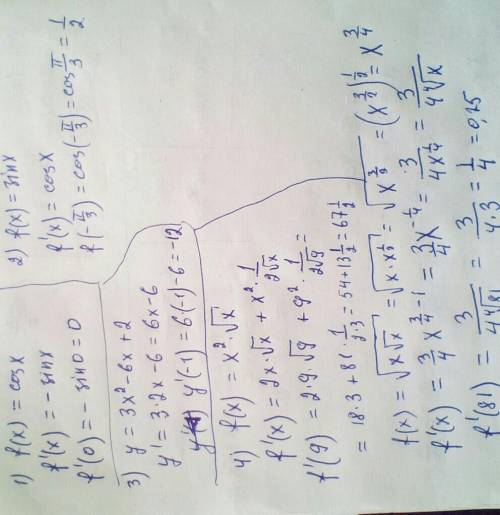 1) f(x) = cosx
f'(x) = -sinx
f'(0) = -sin0 = 0
2) f(x) = sinx
f'(x) = cosx
f'(-π/3) = cos(-π/3) = cos π/3 = 1/2
3) y = 3x² - 6x + 2
y' = 3·2x - 6 = 6x - 6
y'(-1) = 6·(-1) - 6 = -12
4) f(x) = x²·√x
f'(x) = 2x·√x + x²·1/(2√x)
f'(9) = 2·9·√9 + 9²·1/(2√9) =
= 18·3 + 81·1/(2·3) = 54 + 13 1/2 = 67 1/2
f(x) = √(x√x) = √(x·x^(1/2)) = √(x^(3/2)) = (x^(3/2))^(1/2) = x^(3/4)
f'(x) = 3/4 x^(3/4 - 1) = 3/4 x^(-1/4) = 3/(4x^(1/4)) = 3/(4⁴√x)
f'(81) = 3/(4⁴√81) = 3/(4·3) = 1/4 = 0,25